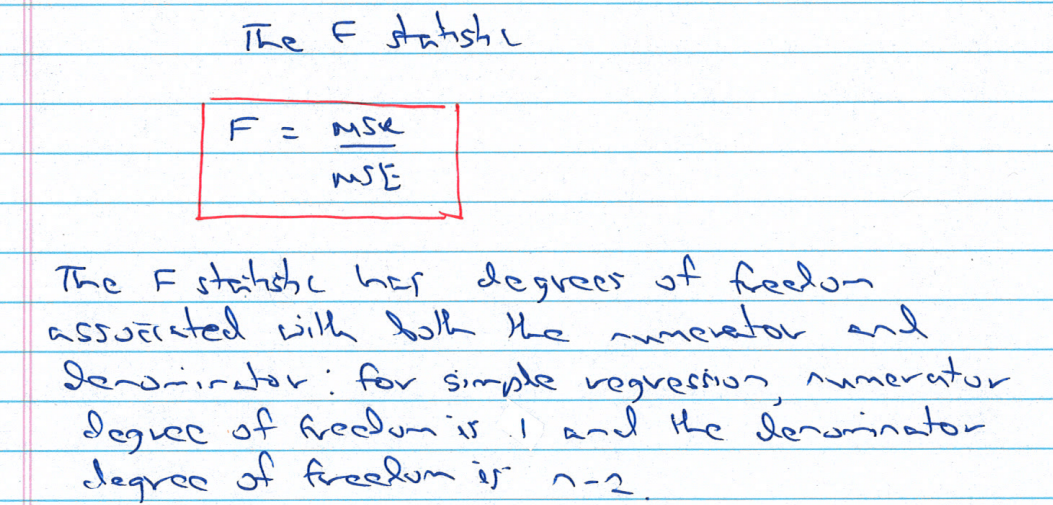 The F statistic
F = MSR
MSE
The F statistic has degrees of freedom
associated with both the numerator and
denominator: for simple regression, numerator
degree of freedom is 1 and the denominator
degree of freedom is n-2.